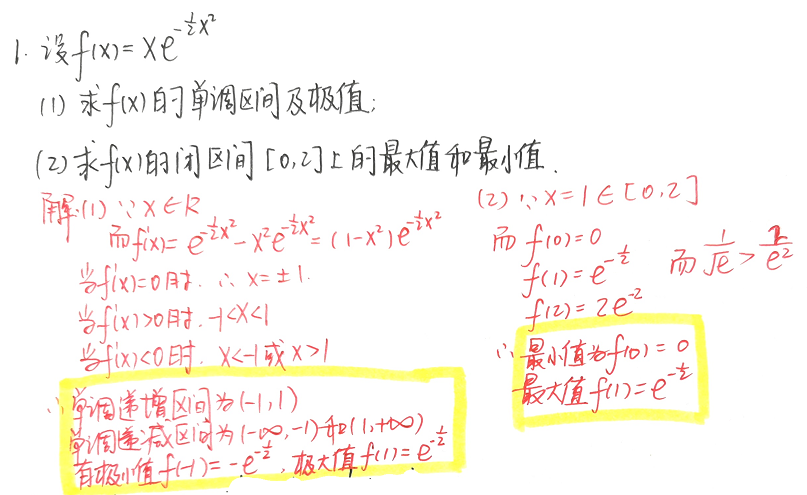 1. 设f(x)=xe^{-\frac{1}{2}x²}
(1) 求f(x)的单调区间及极值;
(2) 求f(x)的闭区间[0,2]上的最大值和最小值.
解:(1) ∵x∈R
而f'(x)=e^{-\frac{1}{2}x²}-x²e^{-\frac{1}{2}x²}=(1-x²)e^{-\frac{1}{2}x²}
当f'(x)=0时. ∴x=±1.
当f'(x)>0时. -1<x<1
当f'(x)<0时. x<-1或x>1
∴单调递增区间为(-1,1)
单调递减区间为(-∞,-1)和(1,+∞)
有极小值f(-1)=-e^{-\frac{1}{2}}, 极大值f(1)=e^{-\frac{1}{2}}
(2) ∵x=1∈[0,2]
而f(0)=0
f(1)=e^{-\frac{1}{2}}
f(2)=2e^{-2}
而\frac{1}{\sqrt{e}}>\frac{2}{e²}
∴最小值为f(0)=0
最大值f(1)=e^{-\frac{1}{2}}